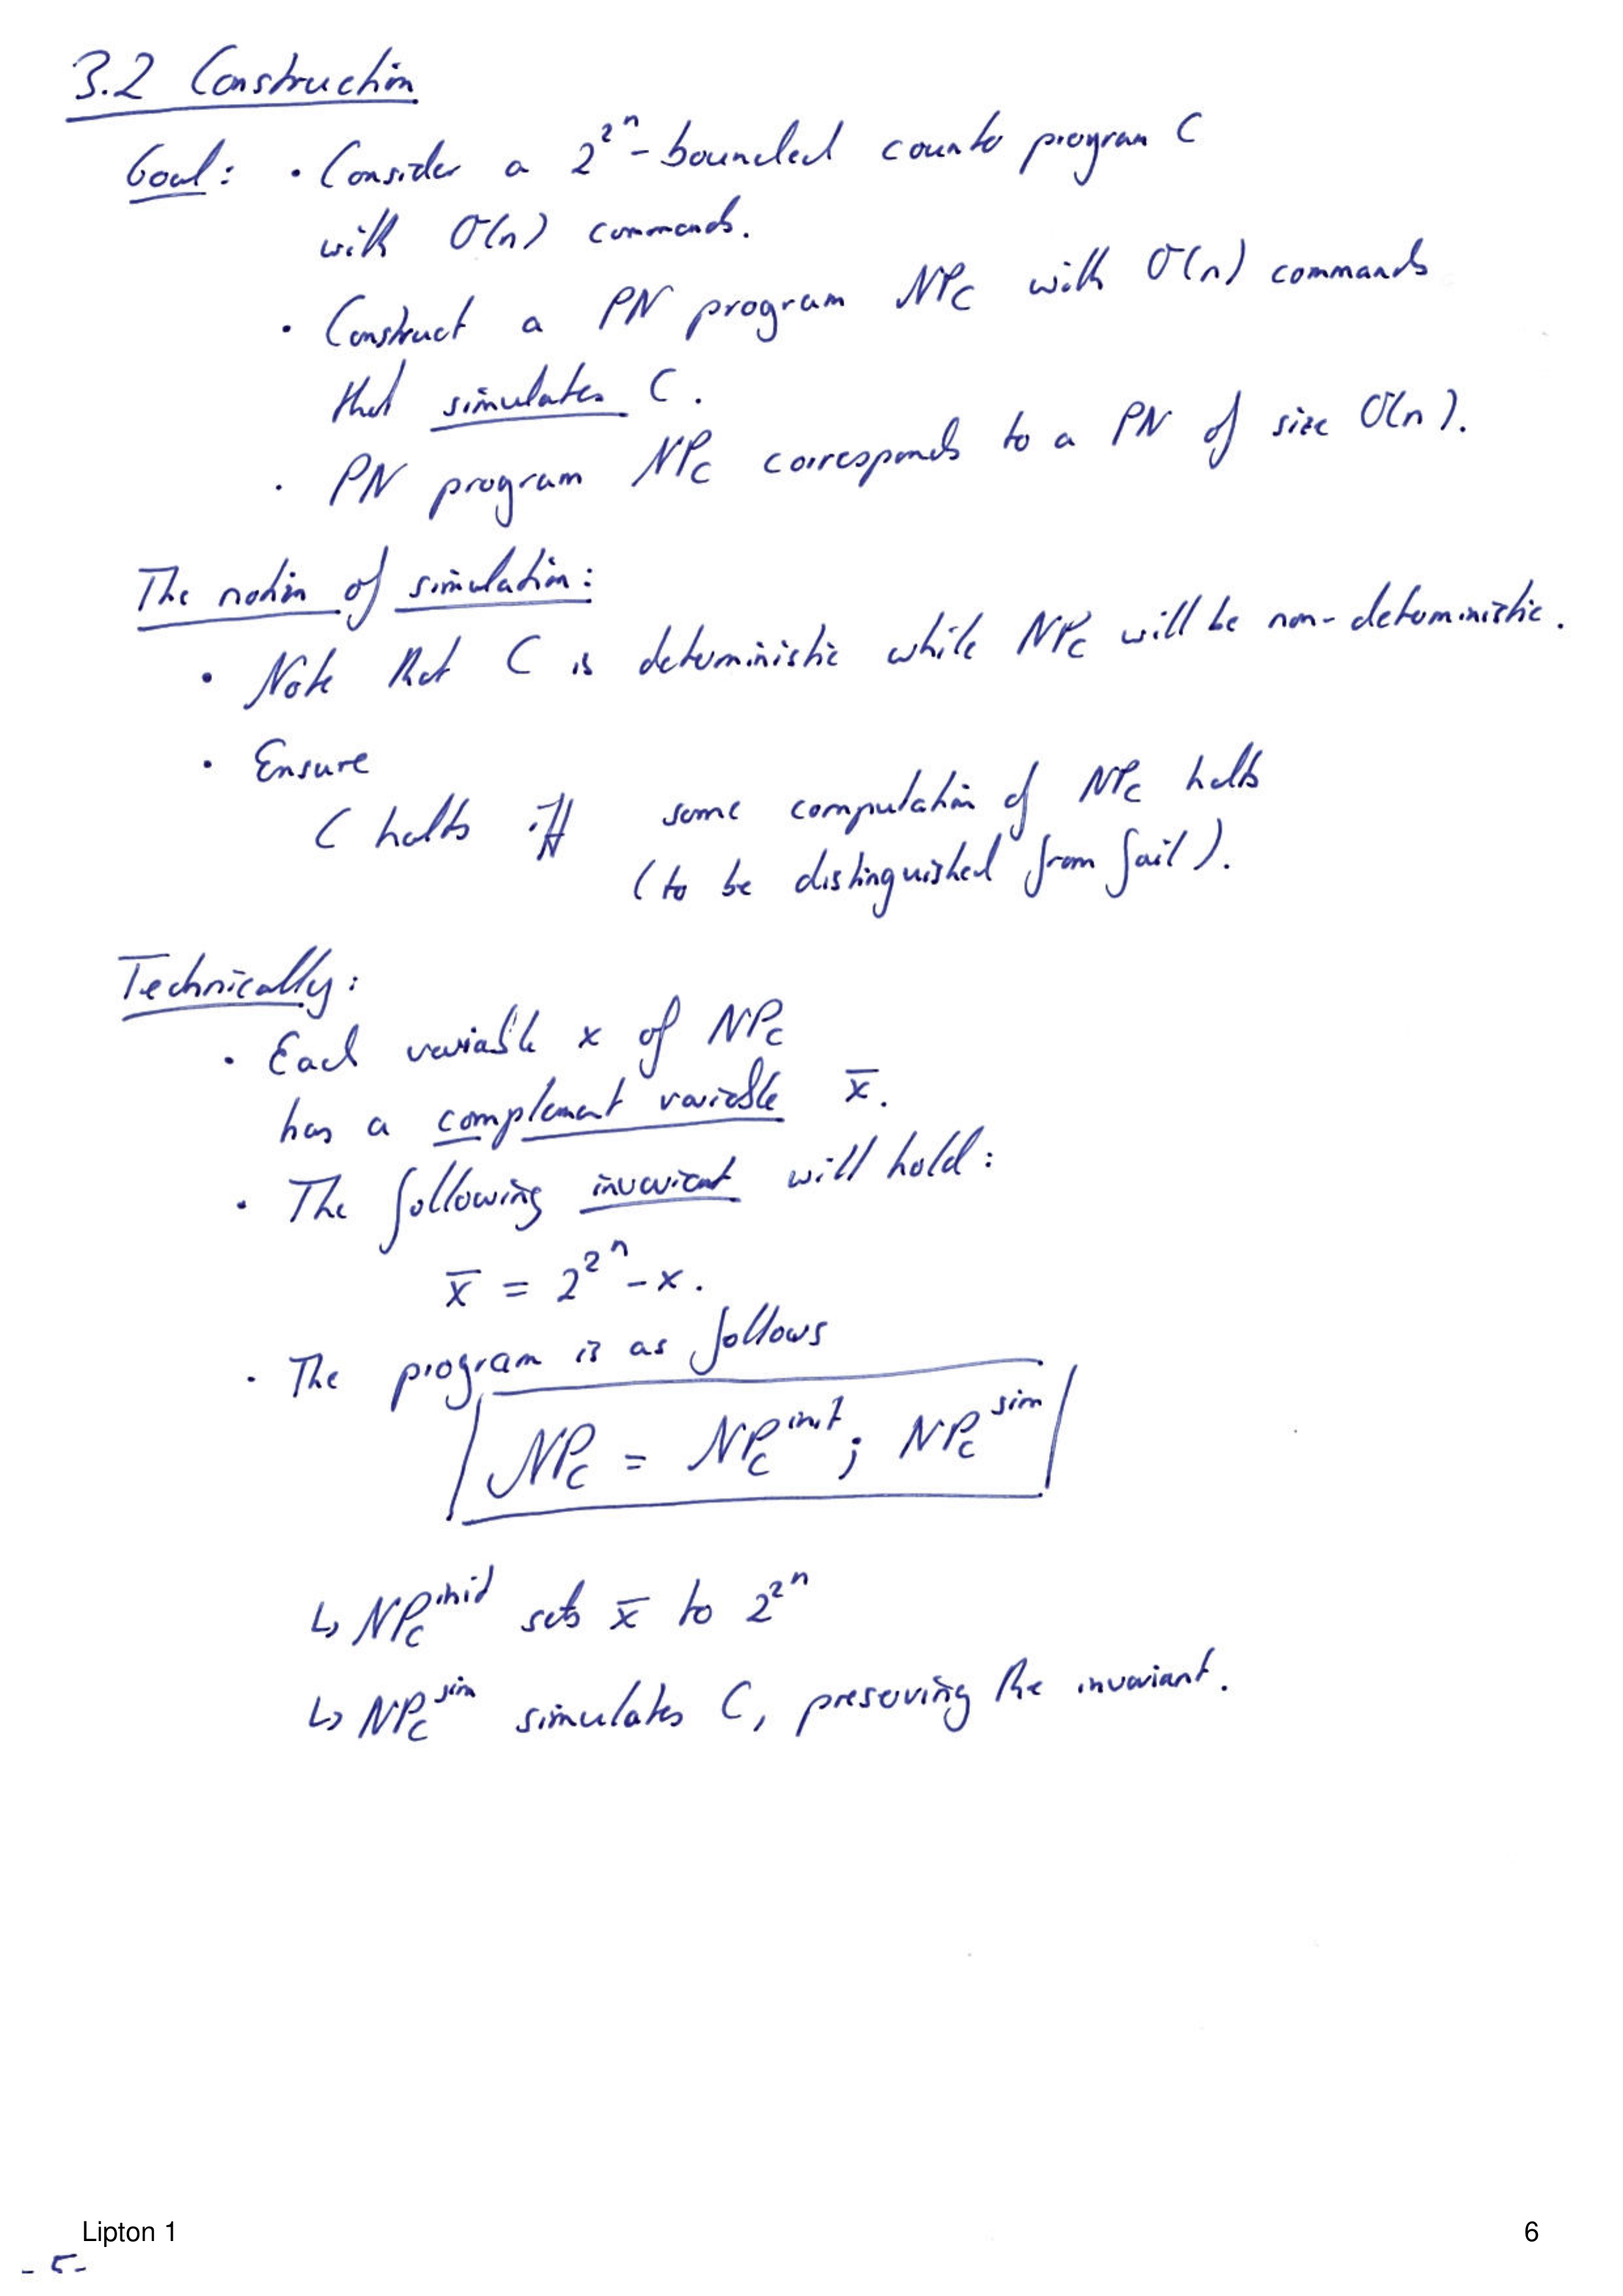 3.2 Construction
Goal: · Consider a 2^{2^n}-bounded counter program C
with O(n) commands.
· Construct a PN program NP_C with O(n) commands
that simulates C.
· PN program NP_C corresponds to a PN of size O(n).
The notion of simulation:
· Note that C is deterministic while NP_C will be non-deterministic.
· Ensure
C halts iff some computation of NP_C halts
(to be distinguished from fail).
Technically:
· Each variable x of NP_C
has a complement variable x̄.
· The following invariant will hold:
x̄ = 2^{2^n} - x.
· The program is as follows
NP_C = NP_C^{init} ; NP_C^{sim}
↳ NP_C^{init} sets x̄ to 2^{2^n}
↳ NP_C^{sim} simulates C, preserving the invariant.
Lipton 1 6
- 5 -